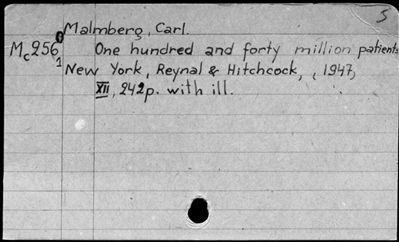 3
Malmberg, Carl.
Mc256 One hundred and forty million patients
1 New York, Reynal & Hitchcock, 1947,
XII, 242p. with ill.